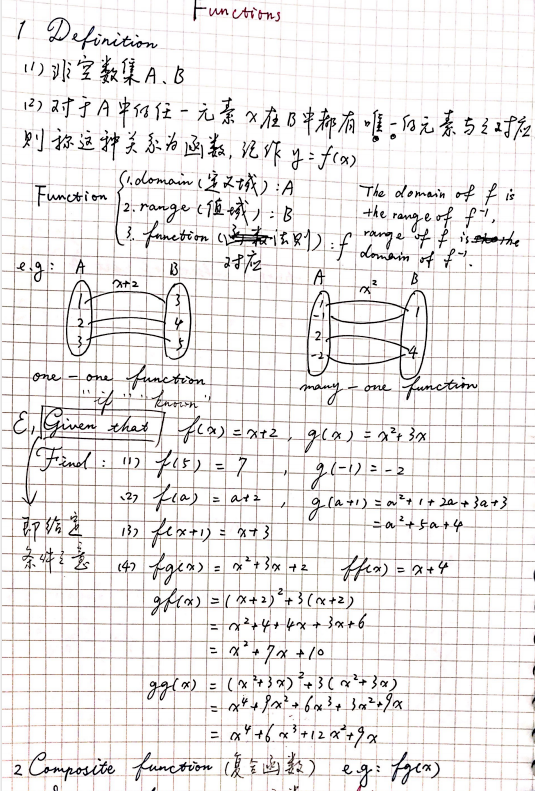 Functions
1 Definition
(1) 非空数集A、B
(2) 对于A中的任一元素x在B中都有唯一的元素与之对应
则称这种关系为函数, 记作 y=f(x)
Function { 1. domain (定义域) : A
2. range (值域) : B
3. function (法则) : f
对应
The domain of f is
the range of f⁻¹,
range of f is the
domain of f⁻¹.
e.g: A B
x+2
1 3
2 4
3 5
one-one function
A B
x²
1
-1 1
2
-2 4
many-one function
"if" "known"
E, Given that f(x)=x+2, g(x)=x²+3x
Find: (1) f(5)=7, g(-1)=-2
(2) f(a)=a+2, g(a+1)=a²+1+2a+3a+3
=a²+5a+4
即给定
条件之意
(3) f(x+1)=x+3
(4) fg(x)=x²+3x+2 ff(x)=x+4
gf(x)=(x+2)²+3(x+2)
=x²+4+4x+3x+6
=x²+7x+10
gg(x)=(x²+3x)²+3(x²+3x)
=x⁴+9x²+6x³+3x²+9x
=x⁴+6x³+12x²+9x
2 Composite function (复合函数) e.g: fg(x)